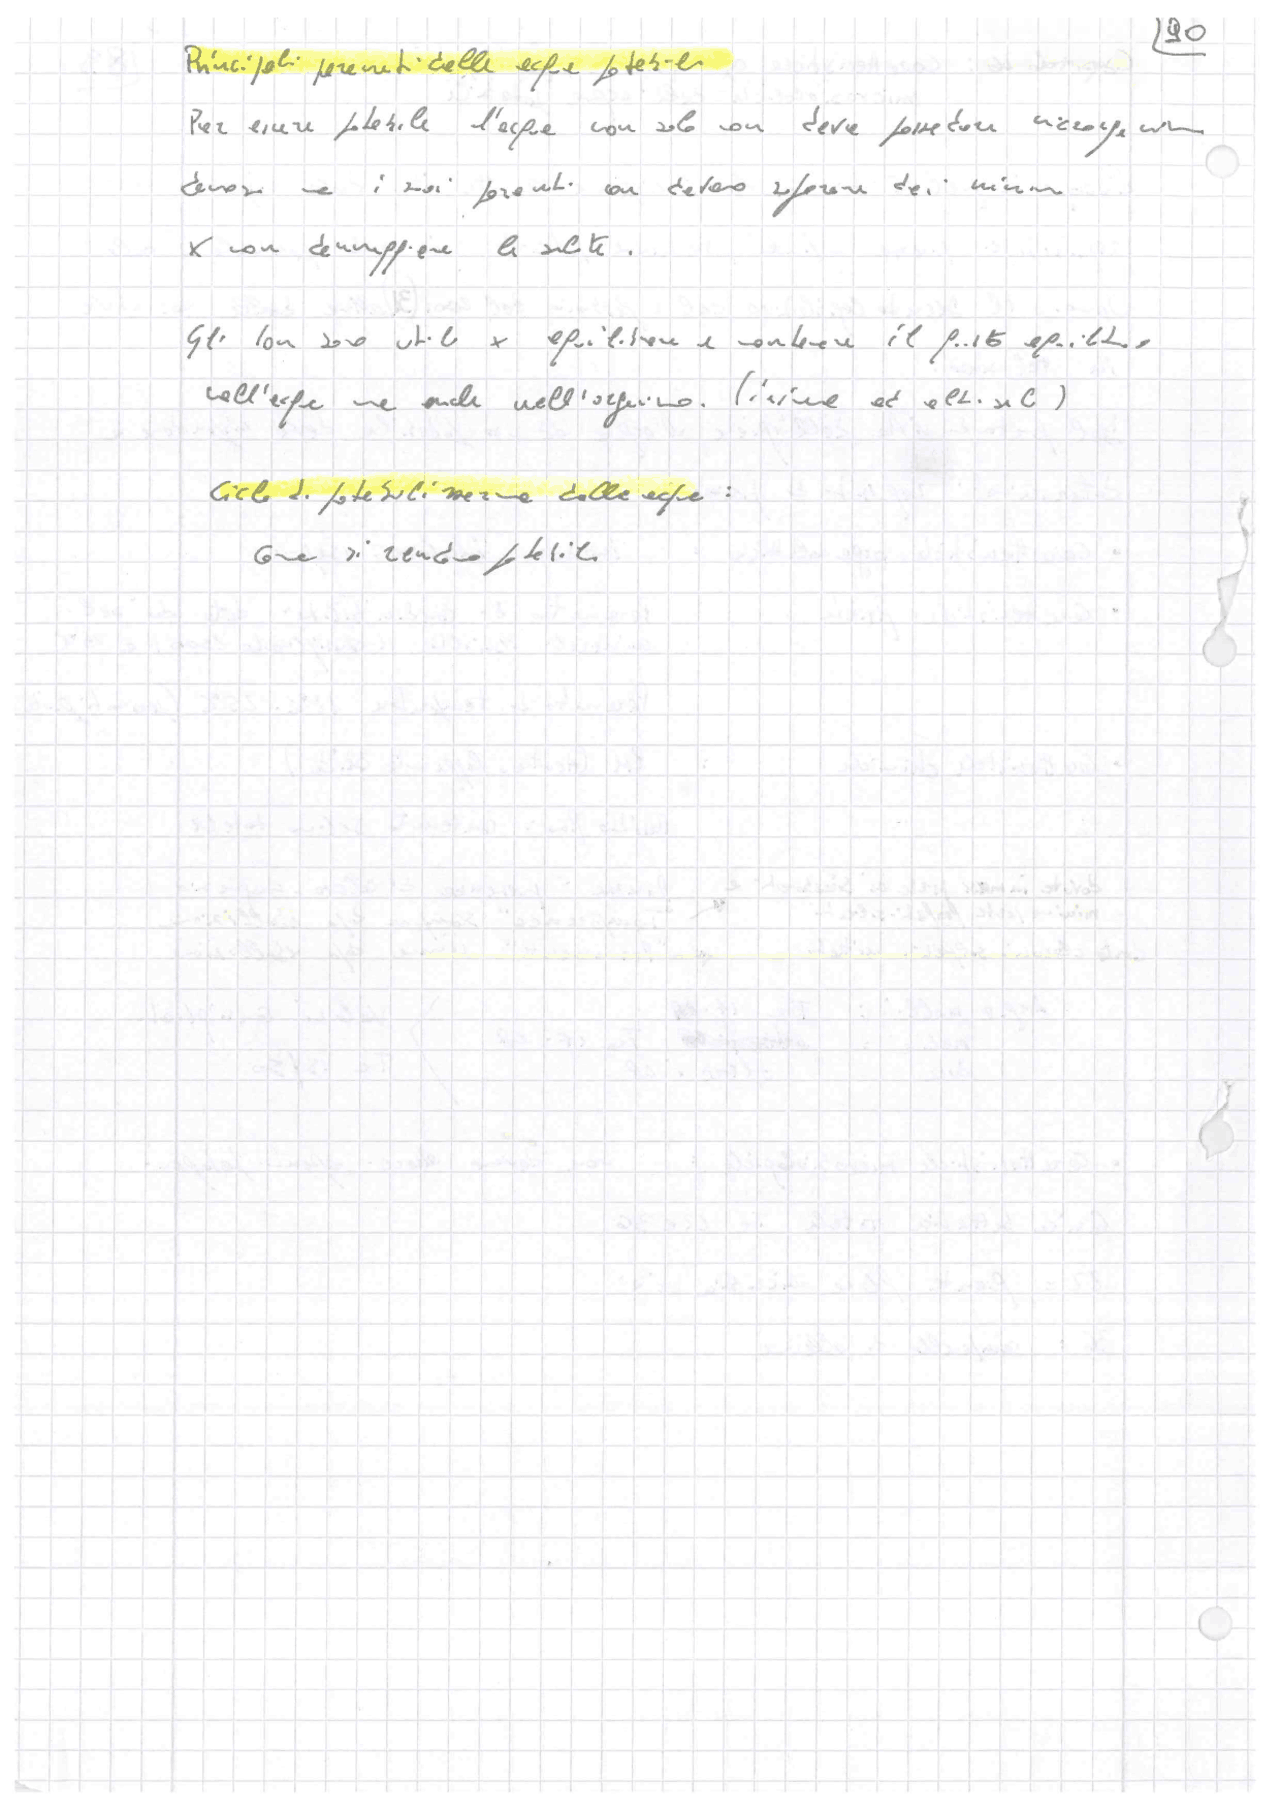 90
Principali parametri delle acque potabili
Per essere potabile l'acqua non solo non deve possedere microrganismi
dannosi ma i suoi parametri non devono superare dei minimi
x non danneggiare la salute.
Gli ioni sono utili x equilibrare e mantenere il giusto equilibrio
nell'acqua ma anche nell'organismo. (insieme ad altri sali)
Ciclo di potabilizzazione delle acque:
Come si rendono potabili